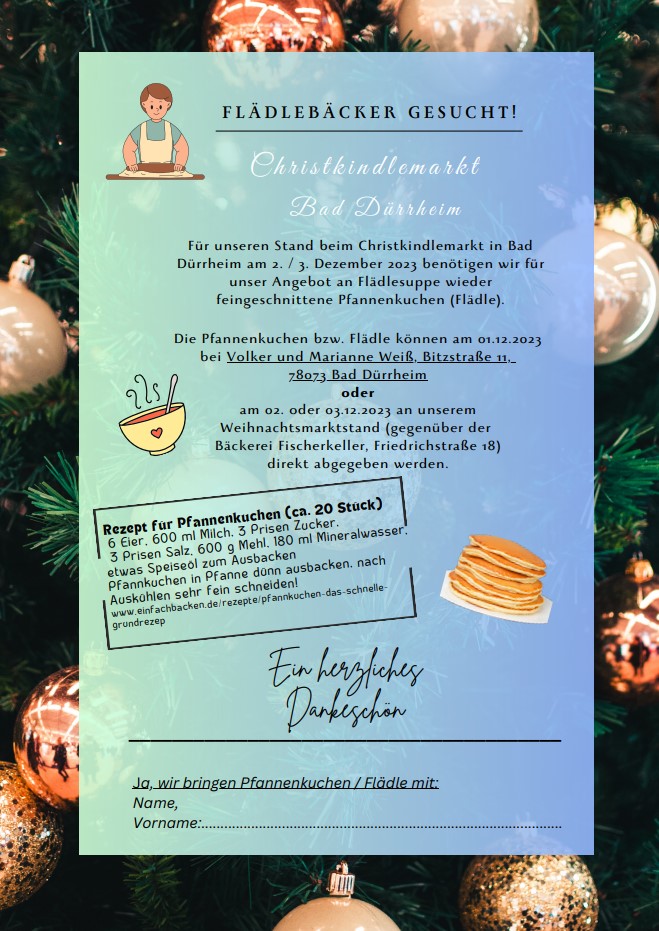 FLÄDLEBÄCKER GESUCHT!
Christkindlemarkt
Bad Dürrheim
Für unseren Stand beim Christkindlemarkt in Bad
Dürrheim am 2. / 3. Dezember 2023 benötigen wir für
unser Angebot an Flädlesuppe wieder
feingeschnittene Pfannenkuchen (Flädle).
Die Pfannenkuchen bzw. Flädle können am 01.12.2023
bei Volker und Marianne Weiß, Bitzstraße 11,
78073 Bad Dürrheim
oder
am 02. oder 03.12.2023 an unserem
Weihnachtsmarktstand (gegenüber der
Bäckerei Fischerkeller, Friedrichstraße 18)
direkt abgegeben werden.
Rezept für Pfannenkuchen (ca. 20 Stück)
6 Eier, 600 ml Milch, 3 Prisen Zucker,
3 Prisen Salz, 600 g Mehl, 180 ml Mineralwasser,
etwas Speiseöl zum Ausbacken
Pfannkuchen in Pfanne dünn ausbacken, nach
Auskühlen sehr fein schneiden!
www.einfachbacken.de/rezepte/pfannkuchen-das-schnelle-
grundrezep
Ein herzliches
Dankeschön
Ja, wir bringen Pfannenkuchen / Flädle mit:
Name,
Vorname:...............................................................................................